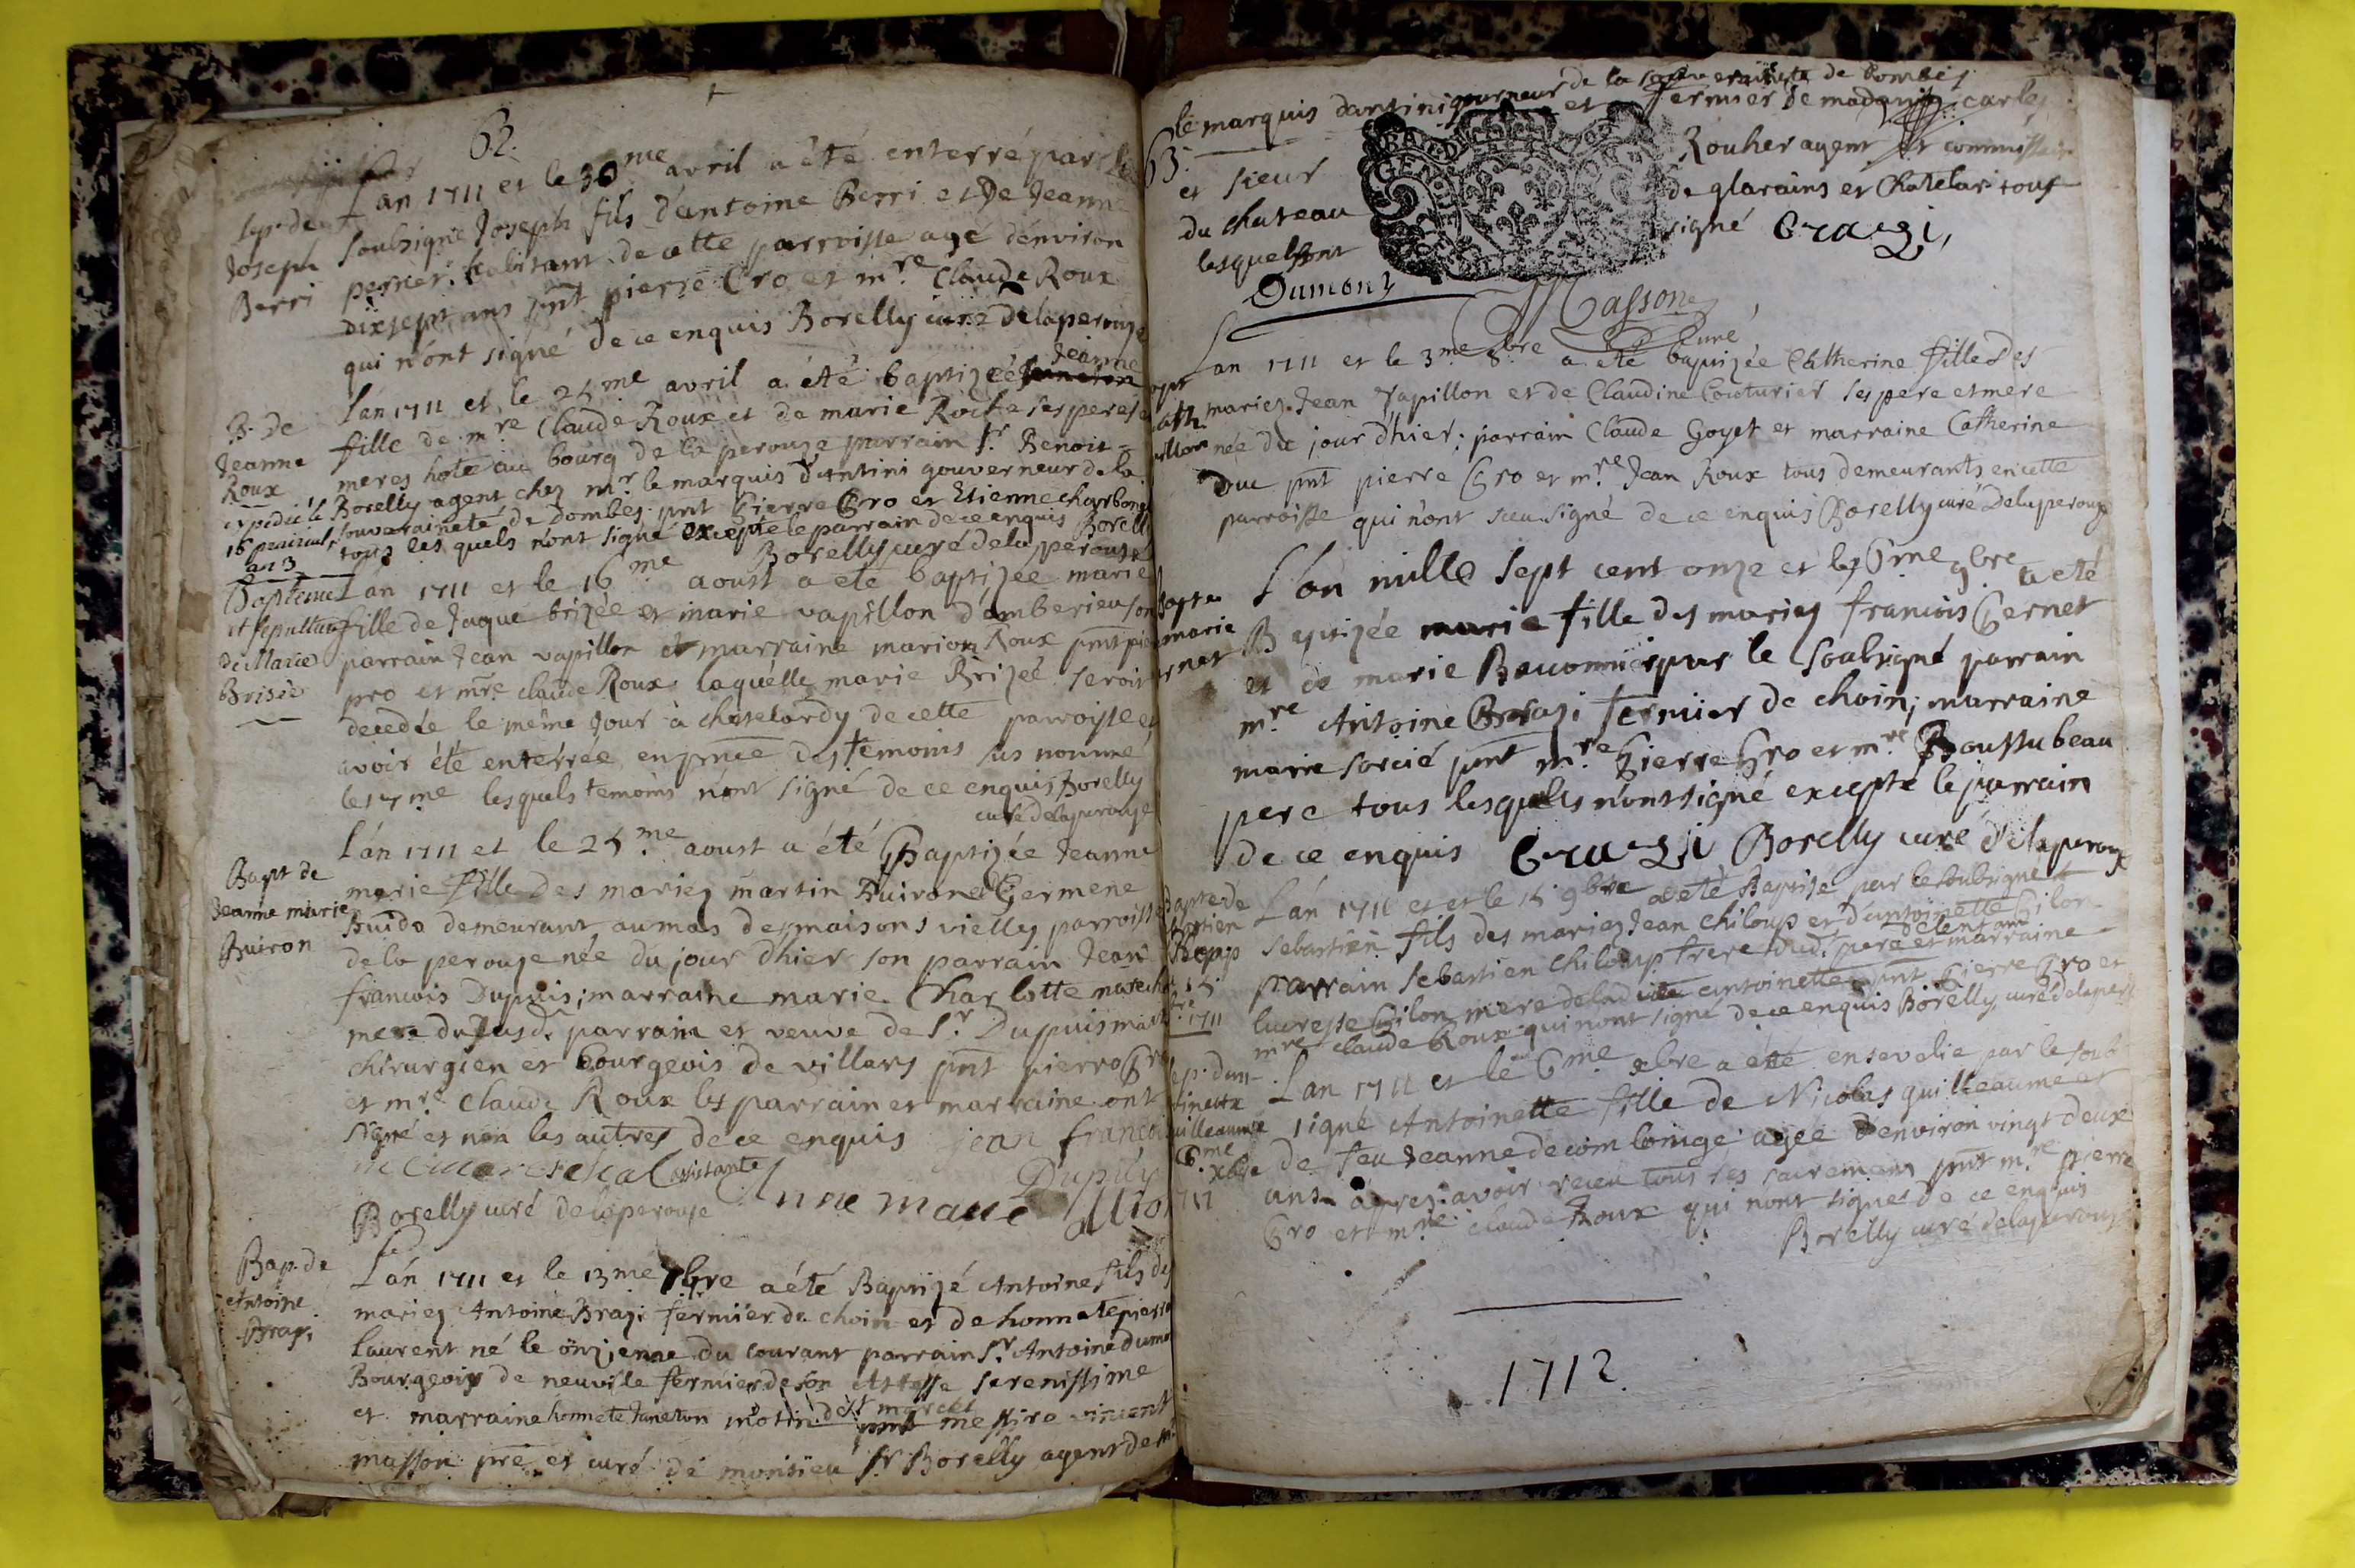 62.
Sep. de
Joseph
Berri
L'an 1711 et le 30me avril a été enterré par le
soubsigné Joseph fils d'antoine Berri et de Jeanne
perrier habitant de cette parroisse agé d'environ
dix sept ans pnt pierre Gro et mre Claude Roux
qui n'ont signé de ce enquis Borelly curé de laperouze
B. de
Jeanne
Roux
expedié le
16
an 3
L'an 1711 et le 25me avril a été baptizée Jeanne
fille de mre Claude Roux et de marie Roche ses pere et
meres hote au bourg de la perouze parrain sr Benoit
Borelly agent chez mr le marquis d'antini gouverneur de la
souveraineté de dombes pnt Pierre Gro et Etienne charbonet
tous les quels n'ont signé excepté le parrain de ce enquis Borelly
Borelly curé de la perouse
Bapteme
et sepulture
de Marie
Brisée
L'an 1711 et le 16me aoust a eté baptizée marie
fille de Jaque brizée et marie vapillon d'amberieu son
parrain Jean vapillon et marraine marion Roux pnt pierre
gro et mre claude Roux laquelle marie Brizée seroit
decedée le même jour à chatelardy de cette parroisse et
avoir été enterrée en pnce des temoins sus nommé
le 17me lesquels temoins n'ont signé de ce enquis Borelly
curé de laperouze
Bapt de
Jeanne marie
Buiron
L'an 1711 et le 25me aoust a été Baptizée Jeanne
marie fille des mariez martin Buiron et Germene
Guido demeurant au mas des maisons vielles parroisse
de la perouze née du jour d'hier son parrain Jean
francois Dupuis; marraine marie Charlotte marechal
mere du susd. parrain et veuve de Sr Dupuis maitre
chirurgien et bourgeois de villars pnt pierre Gro
et mre Claude Roux les parrain et marraine ont
signé et non les autres de ce enquis jean francois
Dupuy
mareschal assistante Anne marie
Borelly curé de laperouse
Bap. de
Antoine
Brazi
L'an 1711 et le 13me 7bre a été Baptizé Antoine fils des
mariez Antoine Brazi fermier de choin et de honnete pierrette
Laurent né le onzienne du courant parrain Sr Antoine dumon
Bourgeois de neuville fermier de son Altesse serenissime
et marraine honnete Janeton motin de st marcel pnt messire vincent
masson pre et curé de monsieu sr Borelly agent de mr
63.
le marquis dantini gouverneur de la souveraineté de Dombes
et fermier de madame carles
et sieur Rouher agent et commissaire
du chateau de glarains et Chatelar tous
lesquels ont signé Brazi,
Dumont
Masson
curé
Bapt
Cath.
vapillon
L'an 1711 et le 3me 8bre a été baptizée Catherine fille des
mariez Jean Vapillon et de Claudine Couturier ses pere et mere
née du jour d'hier; parrain Claude Goyet et marraine Catherine
Duc pnt pierre Gro et mre Jean Roux tous demeurants en cette
parroisse qui n'ont sceu signé de ce enquis Borelly curé de laperouze
Bapt de
marie
Gernet
L'an mille sept cent onze et le 6me 9bre a eté
Baptizée marie fille des mariez francois Gernet
et de marie Beaconnier par le soubsigné parrain
mre Antoine Brazi fermier de choin; marraine
marie sorcié pnt mre Pierre Gro et mre Boussu beau
pere tous lesquels n'ont signé excepté le parrain
de ce enquis Brazi Borelly curé de la perouze
Bapt de
Sebastien
Chiloup
15
9bre 1711
L'an 1711 et et le 15 9bre a eté Baptisé par le soubsigné
Sebastien fils des mariez Jean chiloup et d'antoinette Gilon
parrain Sebastien Chiloup frere dud. pere et marraine
lucresse Gilon mere de ladite antoinette pnt Pierre Gro et
mre claude Roux qui n'ont signé de ce enquis Borelly curé de laperouze
Sep. d'antoinette
Guilleaume
6me
xbre
1711
L'an 1711 et le 6me xbre a été ensevelie par le soub
signé Antoinette fille de Nicolas guilleaume et
de feu Jeanne decomboinge agée d'environ vingt deux
ans apres avoir receu tous ses sacremens pnt mre pierre
Gro et mre claude Roux qui n'ont signer de ce enquis
Borelly curé de laperouze
1712.